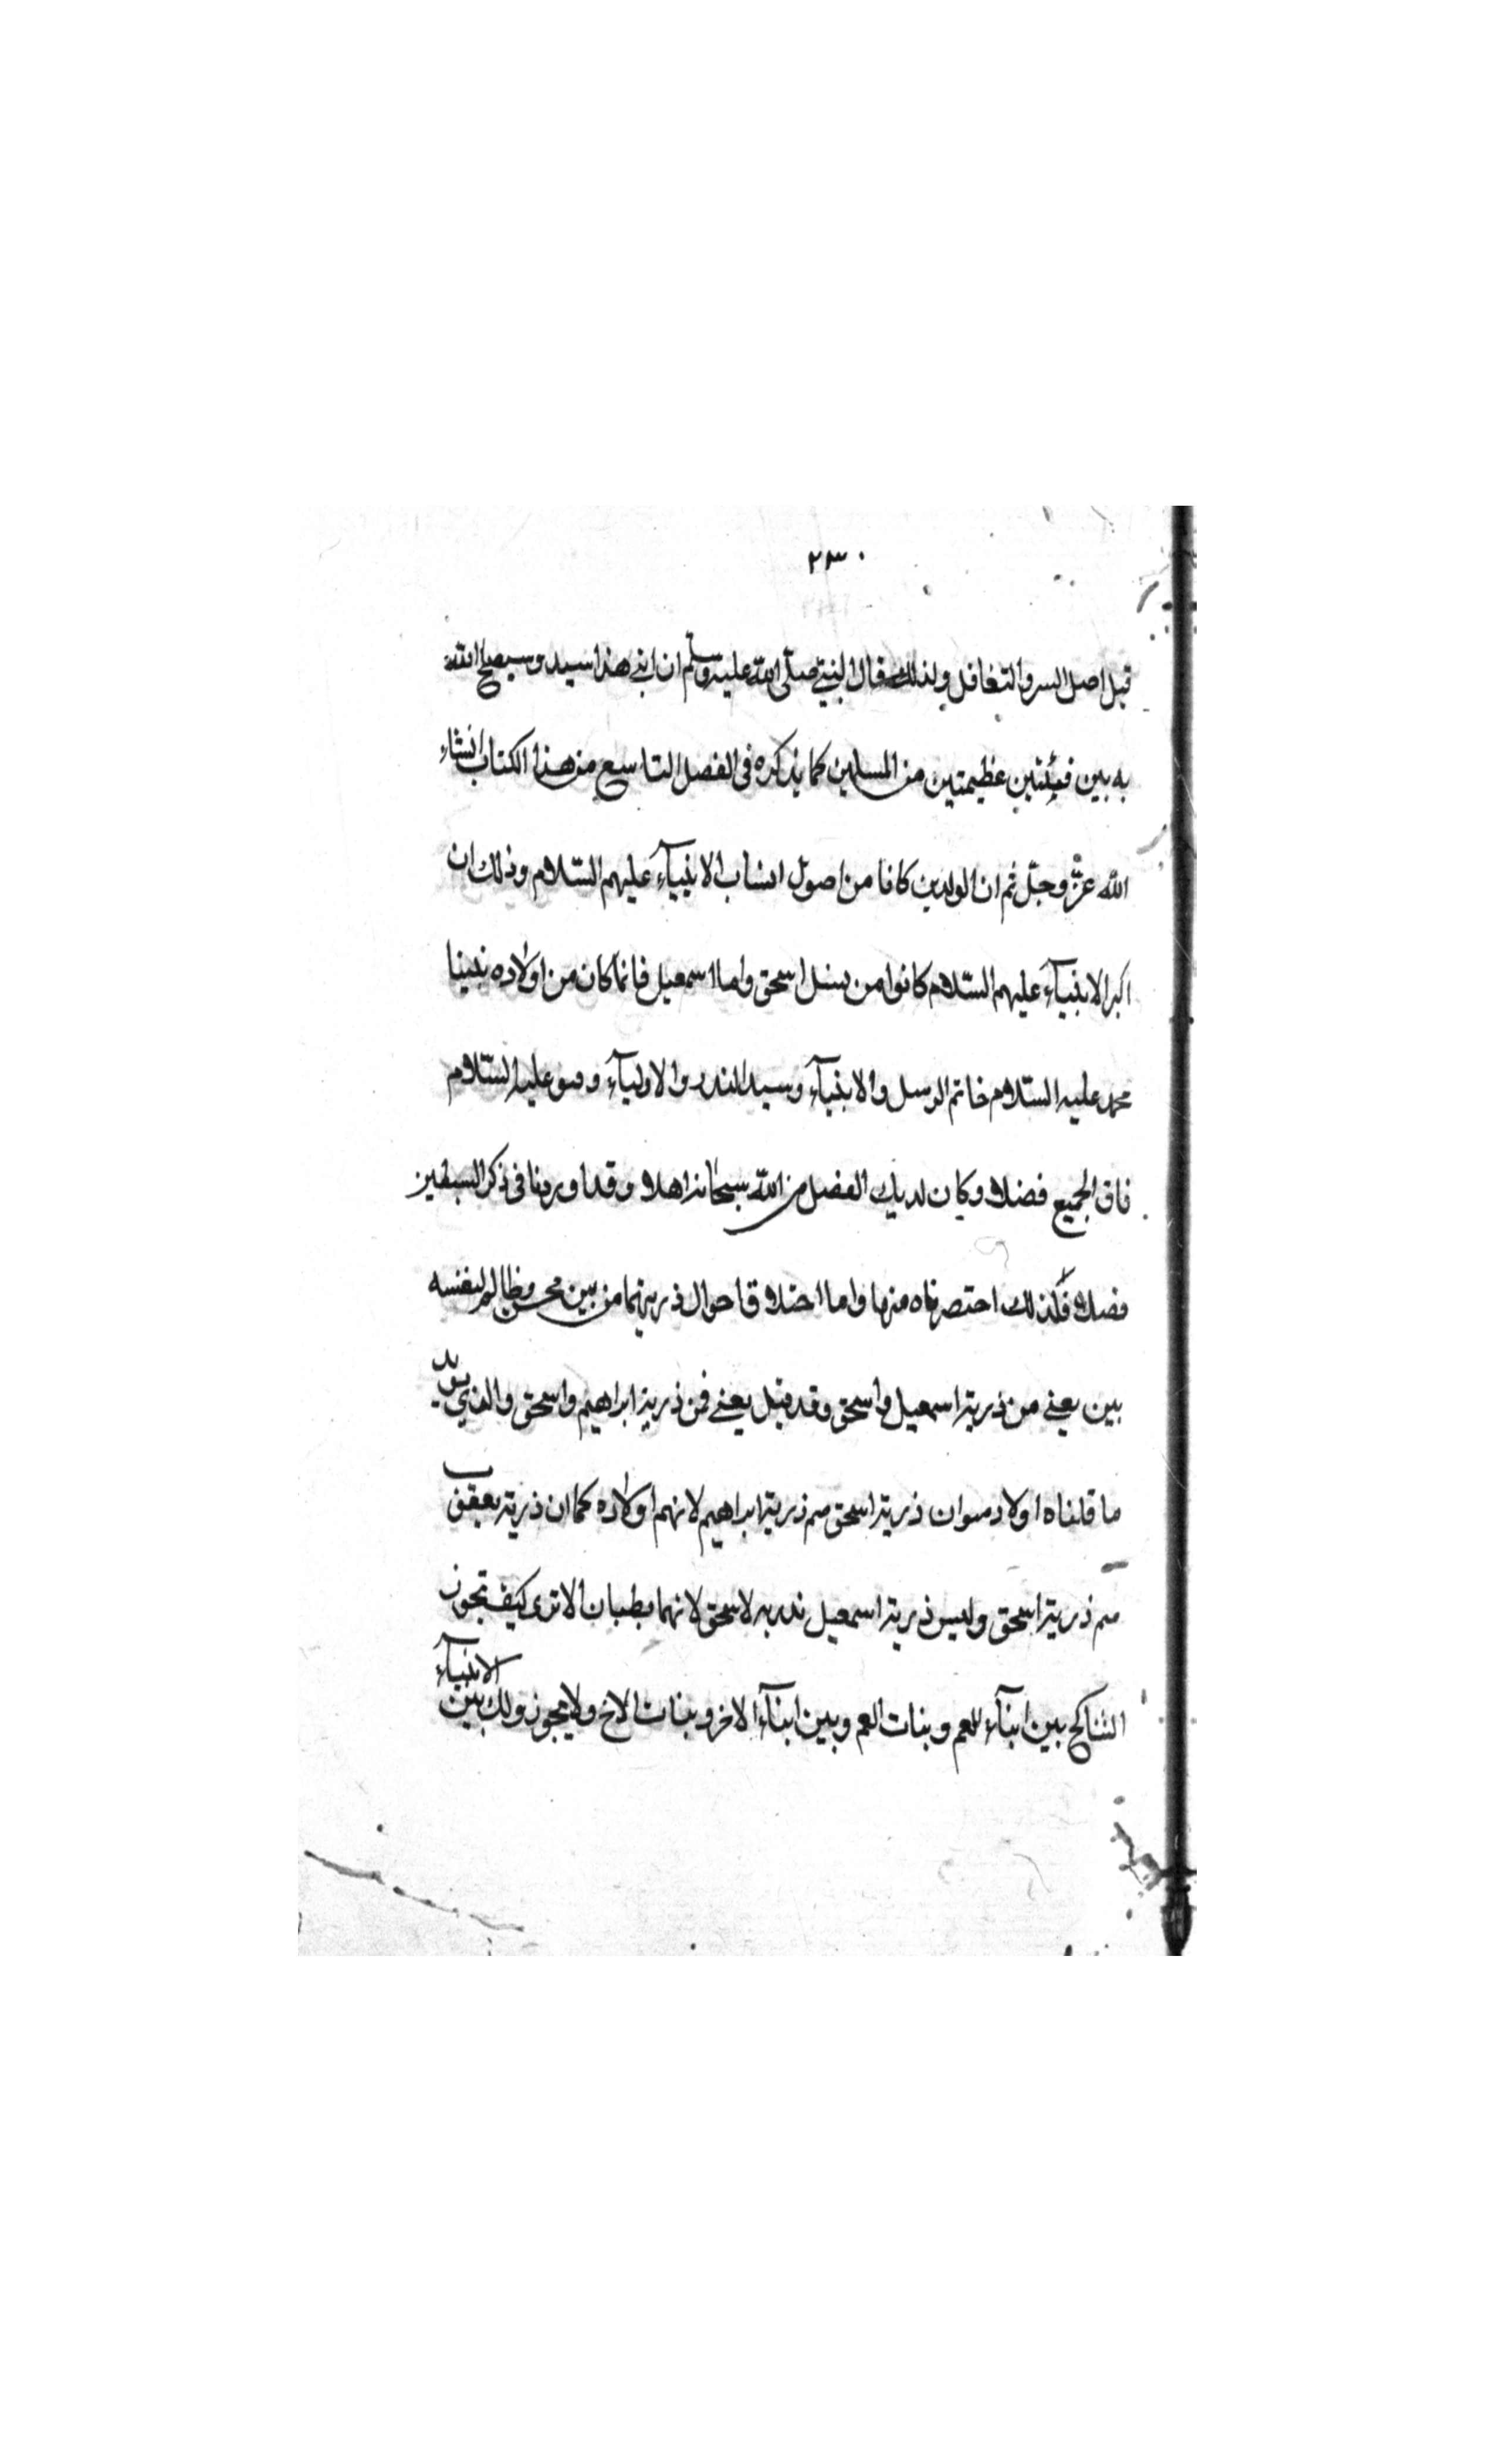 ٢٣٠
قبل اصل السر والتغافل ولذلك قال النبي صلى الله عليه وسلم ان ابني هذا سيد وسيصلح الله
به بين فئتين عظيمتين من المسلمين كما نذكره في الفصل التاسع من هذا الكتاب انشاء
الله عزّ وجلّ ثم ان الولدين كانا من اصول انساب الانبيآء عليهم السّلام وذلك ان
اكبر الانبيآء عليهم السّلام كانوا من نسل اسحق واما اسمعيل فانما كان من اولاده نبينا
محمد عليه السّلام خاتم الرسل والانبيآء وسيد والاوليآء وهو عليه السّلام
فاق الجميع فضلا وكان لديك الفضل من الله سبحانه اهلا وقد اوردنا في ذكر السبقين
فضلا فلذلك احتصرناه منها واما اختلاف احوال ذريتهما من بين محسن وظالم لنفسه
بين يعني من ذرية اسمعيل واسحق وقد قيل يعني فمن ذرية ابراهيم واسحق والذي يد
ما قلناه اولا هو ان ذرية اسحق هم ذرية ابراهيم لانهم اولاده كما ان ذرية يعقوب
هم ذرية اسحق وليس ذرية اسمعيل بذريه لاسحق لانهما بطبان الا ترى كيف تجوز
التناكح بين ابنآء العم وبنات العم وبين ابنآء الاخ وبنات الاخ ولا يجوز ولك بين الانبيآء